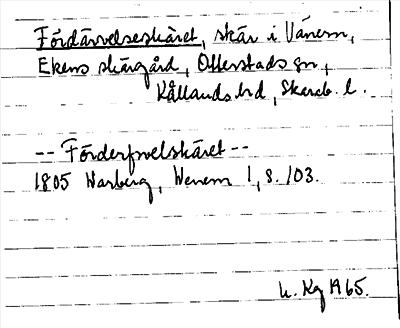 Fördärvelseskäret, skär i Vänern,
Ekens skärgård, Otterstads sn,
Kållands hd, Skarab. l.
-- Förderfwelskäret --
1805 Warberg, Wenern 1, s. 103.
Kg 1965.